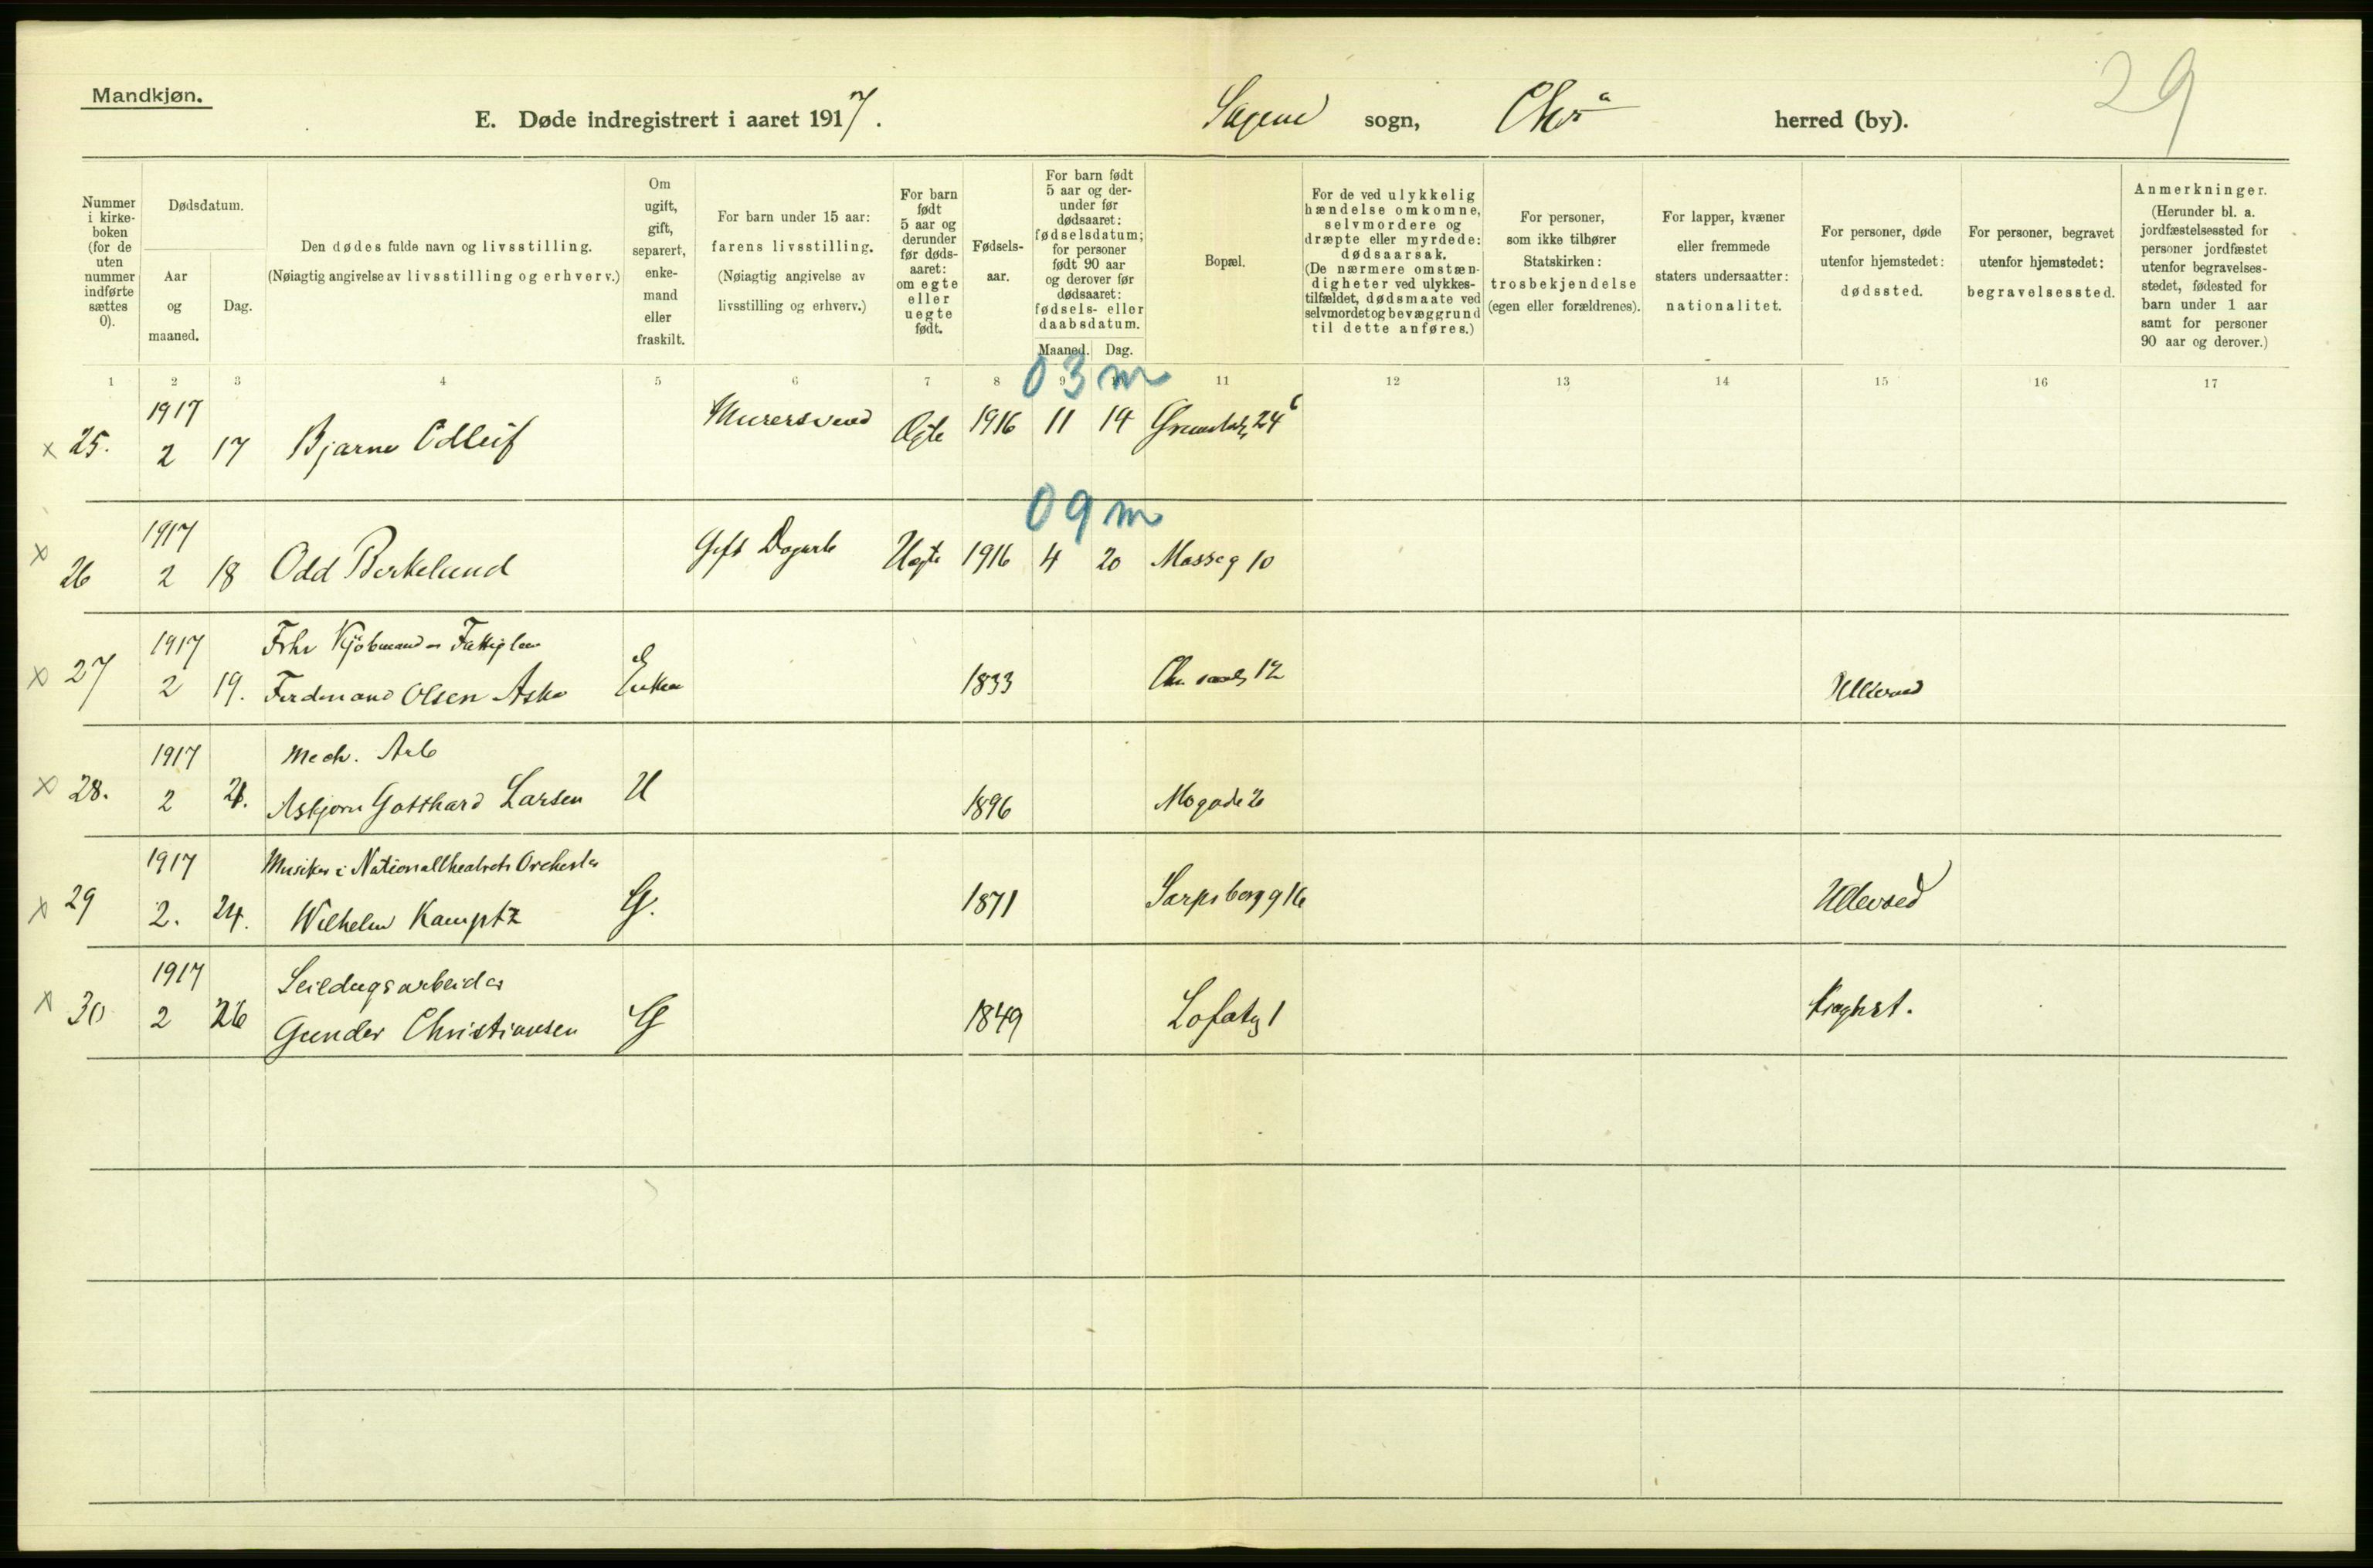 Mandkjøn.
29
E. Døde indregistrert i aaret 1917. Sagene sogn, Chr.a herred (by).
Nummer i kirkeboken (for de uten nummer indførte sættes 0).
Dødsdatum.
Aar og maaned.
Dag.
Den dødes fulde navn og livsstilling. (Nøiagtig angivelse av livsstilling og erhverv.)
Om ugift, gift, separert, enkemand eller fraskilt.
For barn under 15 aar: farens livsstilling. (Nøiagtig angivelse av livsstilling og erhverv.)
For barn født 5 aar og derunder før dødsaaret: om egte eller uegte født.
Fødselsaar.
For barn født 5 aar og derunder før dødsaaret: fødselsdatum; for personer født 90 aar og derover før dødsaaret: fødsels- eller daabsdatum.
Maaned. Dag.
Bopæl.
For de ved ulykkelig hændelse omkomne, selvmordere og dræpte eller myrdede: dødsaarsak. (De nærmere omstændigheter ved ulykkestilfældet, dødsmaate ved selvmordet og bevæggrund til dette anføres.)
For personer, som ikke tilhører Statskirken: trosbekjendelse (egen eller forældrenes).
For lapper, kvæner eller fremmede staters undersaatter: nationalitet.
For personer, døde utenfor hjemstedet: dødssted.
For personer, begravet utenfor hjemstedet: begravelsessted.
Anmerkninger. (Herunder bl. a. jordfæstelsessted for personer jordfæstet utenfor begravelsesstedet, fødested for barn under 1 aar samt for personer 90 aar og derover.)
1 2 3 4 5 6 7 8 9 11 12 13 14 15 16 17
03 m
x 25. 1917 2 17 Bjarne Odleif Murersvend Egte 1916 11 14 24 c
09 m
x 26 1917 2 18 Odd Berkelund Gift Uegte 1916 4 20 Mosseg 10
Fhv Kjøbmand
x 27 1917 2 19. Ferdinand Olsen Aske Enkem 1833 12 Ullevaal
Mech. Arb
x 28. 1917 2 21. Asbjørn Gotthard Larsen U 1896 Mogade 2
Musiker i Nationaltheatrets Orchester
x 29 1917 2. 24. Wilhelm Kamptz G. 1871 Sarpsborg g 16 Ullevaal
Seildugsarbeider
x 30 1917 2 26 Gunder Christiansen G 1849 Lofotg 1 Kroghst.